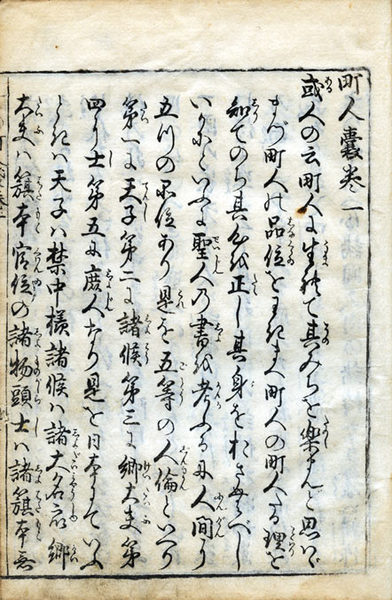 町人嚢巻一
或人の云町人に生れて其みちを楽まんと思はゞ
まづ町人の品位をわきまへ町人の町人たる理を
知てのち其心を正し其身をおさむべし
いかにといふに聖人の書を考ふるに人間に
五つの品位あり是を五等の人倫といへり
第一に天子第二に諸侯第三に卿大夫第
四に士第五に庶人なり是を日本にていふ
ときハ天子ハ禁中様諸侯ハ諸大名卿
大夫ハ籏本官位の諸物頭士ハ諸籏本無